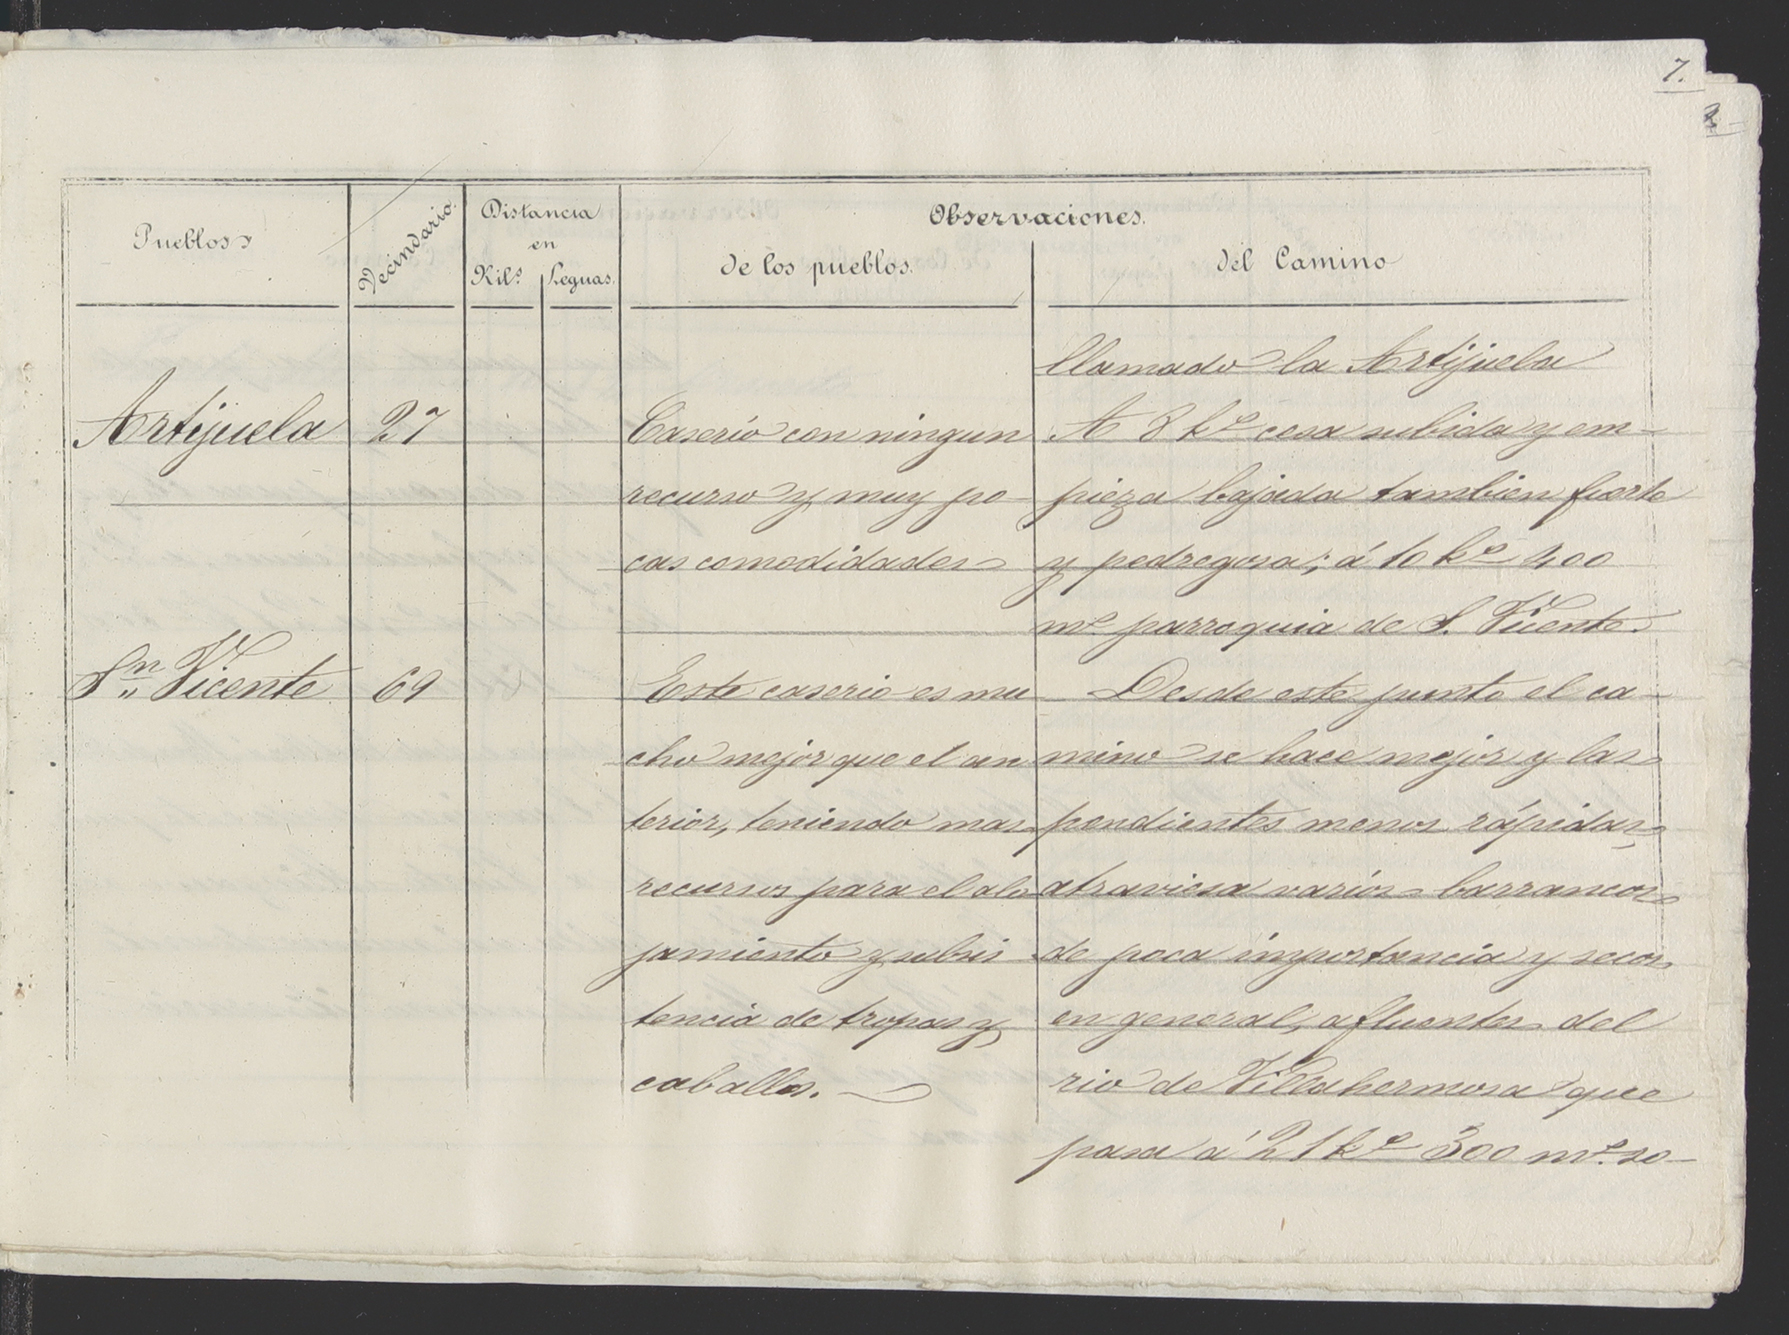 7.
Pueblos
Vecindario.
Distancia
en
Kil.s
Leguas.
Observaciones.
de los pueblos.
del Camino
llamado la Artijuela
Artijuela
27
Caserio con ningun
recurso y muy po-
cas comodidades
A 8 k.s cesa subida y em-
pieza bajada tambien fuerte
y pedregosa; á 10 k.s 400
m.s parroquia de S. Vicente.
S.n Vicente
69
Este caserio es mu
cho mejor que el an
terior, teniendo mas
recursos para el alo
jamiento y subsis
tencia de tropas y
caballos.
Desde este punto el ca-
mino se hace mejor y las
pendientes menos rápidas,
atraviesa varios barrancos
de poca importancia y secos
en general, afluentes del
rio de Villahermosa que
pasa á 21 k.s 300 m.s so-